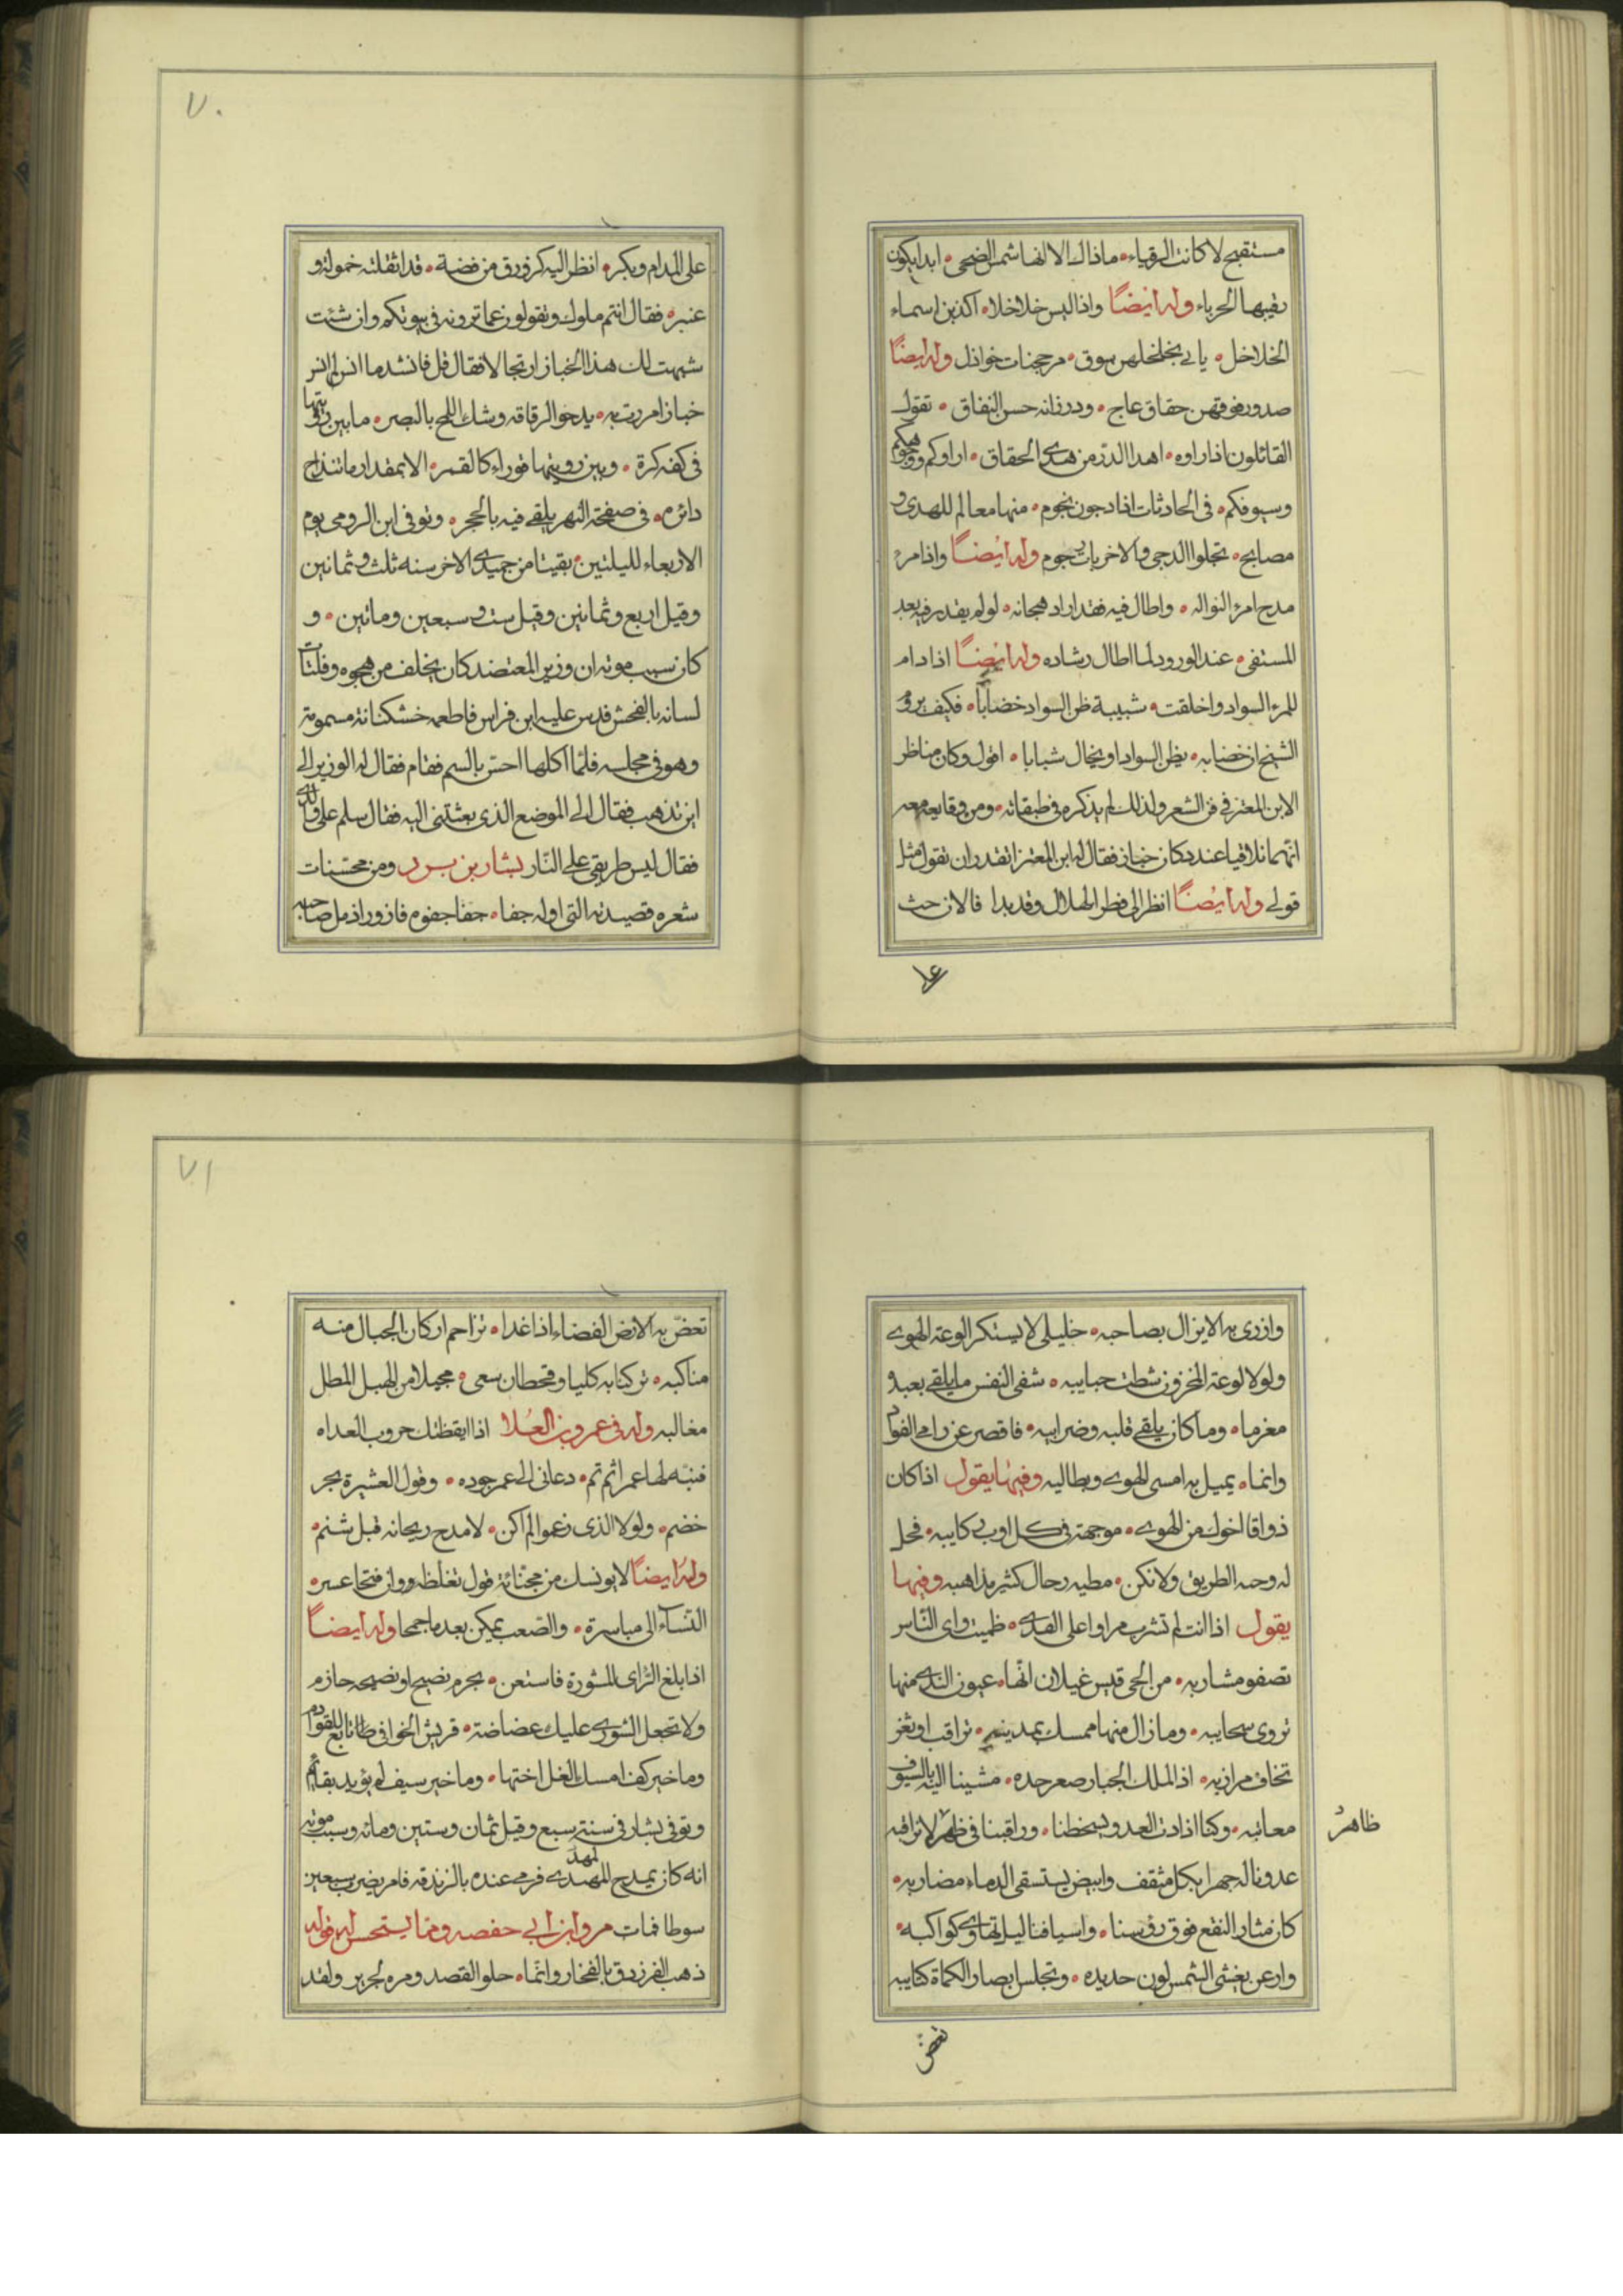 مستقبح لا كانت الرقباء • ماذاك الا انها شمس الضحى • ابدا يكون
رقيبها الحرباء وله ايضاً واذا لبس خلاخلا • اكذبن اسماء
الخلاخل • يابى تخلخلهن سوق • مرجحنات خواذل وله ايضاً
صدور فوقهن حقاق عاج • ودر زانه حسن النفاق • تقول
القائلون اذا راوه • اهدا الدر من هدى الحقاق • اراوكم ووجوهكم
وسيوفكم • فى الحادثات اذا دجون نجوم • منها معالم للهدى و
مصابح • تجلوا الدجى والاخريات رجوم وله ايضاً واذا امرء
مدح امرء لنواله • واطال فيه فقد اراد هجائه • لو لم يقدر فيه بعد
المستقى • عند الورود لما اطال رشاده وله ايضاً اذا دام
للمرء السواد واخلقت • شبيبة ظن السواد خضاباً • فكيف يروم
الشيخ ان خضابه • يظن السواد او يخال شبابا • اقول وكان مناظر
الابن المعتز فى فن الشعر ولذلك لم يذكره فى طبقاته • ومن وقايعه معه
انهما تلاقيا عند دكان خباز فقال له ابن المعتز اتقدر ان تقول مثل
قولى وله ايضاً انظر الى فطر الهلال وقد بدا فالان حث
على
٧٠
على المدام وبكر • انظر اليه كزورق من فضة • قد اثقلته حمولة و
عنبر • فقال انتم ملوك وتقولون عما ترونه فى بيوتكم وان شئت
شبهت لك هذا الخباز ارتجالا فقال قل فانشد ما انس لا انس
خباز امررت به • يدحو الرقاقه وشك اللمح بالبصر • ما بين رؤيتها
فى كفه كرة • وبين رويتها قوراء كالقمر • الا بمقدار ما تنداح
دائره • فى صفحة النهر يلقى فيه بالحجر • وتوفى ابن الرومى يوم
الاربعاء لليلتين بقيتا من جميدى الاخر سنه ثلث و ثمانين
وقيل اربع وثمانين وقيل ست و سبعين وماتين • و
كان سبب موته ان وزير المعتضد كان يخلف من هجوه وفلتات
لسانه بالفحش فدس عليه ابن فراس فاطعمه خشكنانة مسمومة
وهو فى مجلسه فلما اكلها احس بالسم فقام فقال له الوزير الى
اين تذهب فقال الى الموضع الذى بعثتنى اليه فقال سلم على والدى
فقال ليس طريقى على النار بشار بن برد ومن محسنات
شعره قصيدته التى اوله جفا • جفا جفوه فازور اذ مل صاحبه
وازرى به الا يزال بصاحبه • خليلى لا يستكر الوعة الهوى
ولو لا لوعة المخزون شطت حبايبه • شفى النفس ما يلقى بعبده
مغرما • وما كان يلقى قلبه وضرايبه • فاقصر عن رامى الفواد
وانما • يميل به امسى الهوى ويطالبه وفيها يقول اذا كان
ذواقا اخوك من الهوى • موجهة فى كل اوب ركايبه • فخل
له وجه الطريق ولا تكن • مطيه رحال كثير مذاهبه وفيها
يقول اذا انت لم تشرب مراوا على القذى • ظميت واى الناس
تصفو مشاربه • من الحى قيس غيلان انها • عيون الندى منها
تروى سحايبه • وما زال منها ممسك بمدينه • تراقب او ثغر
تخاف مرازبه • اذ الملك الجبار صعر حده • مشينا اليه بالسيوف
معاتبه • وكنا اذا دت العدو يسخطنا • وراقبنا فى ظهر لا نراقبه
ظاهر
عدونا له جهرا بكل مثقف وابيض يستسقى الدماء مضاربه •
كان مثار النقع فوق رؤسنا • واسيافنا ليل تهاوى كواكبه •
وارعن يغشى الشمس لون حديده • وتجلس ابصار الكماة كتايبه
تعض
٧١
تعض به الارض الفضاء اذا غدا • تزاحم اركان الجبال منه
مناكبه • تركنا به كلبا و قحطان سعى • مجملا من الهبل المطل
مغالبه وله فى عمرو بن العلا اذا ايقظتك حروب العداه
فنبه لها عمرا ثم نم • دعانى الى عمر جوده • وقول العشيرة بحر
خضم • ولو لا الذى زعموا لم اكن • لا مدح ريحانه قبل شنم •
وله ايضاً لا يونسك من مجنائة قول تغلظه ووان فتحا عسر •
النساء الى مياسرة • والصعب يمكن بعد ما جمحا وله ايضاً
اذا بلغ الراى المشورة فاستعن • بحزم نصيح او نصيحه حازم
ولا تجعل الشورى عليك غضاضة • فريش الخوافى تابع للقوادم
وما خير كف امسك الغل اختها • وما خير سيف لم يؤيد بقائم
وتوفى بشار فى سنة سبع وقيل ثمان وستين ومائه وسبب موته
انه كان يمدح المهدى فرمى عنده بالزندقه فامر بضربه سبعين
سوطا فمات مروان ابن ابى حفصه ومما يستحسن له قوله
ذهب الفرزدق بالفخار وانما • حلو القصد ومره لجرير ولقد